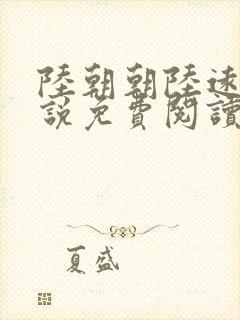 陸朝朝陸遠
説免費閱讀
夏盛